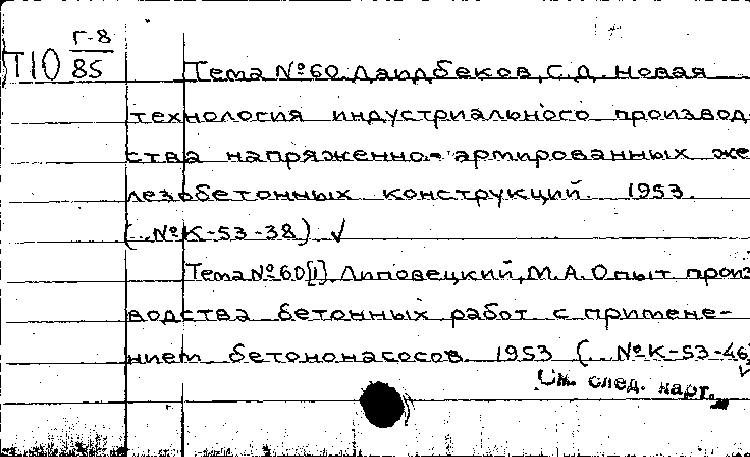 Т10 Г-8
85
Тема №60. Даидбеков, С.Д. Новая
технология индустриального производ-
ства напряженно-армированных же
лезобетонных конструкций. 1953.
(..№К-53-38) ✓
Тема №60[1]. Липовецкий, М.А. Опыт произ
водства бетонных работ с примене-
нием бетононасосов. 1953 (..№К-53-46)
См. след. карт.